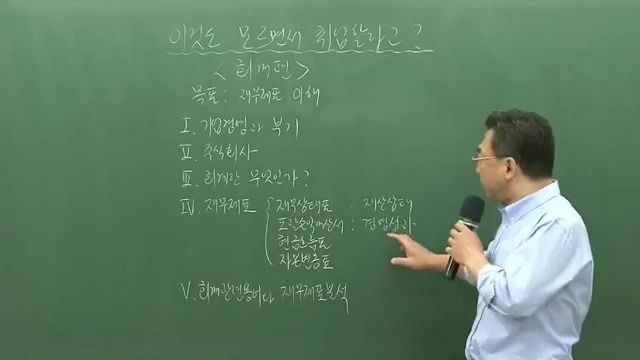 이것도 모르면서 취업할라고?
<회계편>
목표 : 재무제표 이해
I. 기업경영과 부기
II. 주식회사
III. 회계란 무엇인가?
IV. 재무제표 { 재무상태표 : 재산상태
포괄손익계산서 : 경영성과
현금흐름표
자본변동표
V. 회계관련용어와 재무제표분석